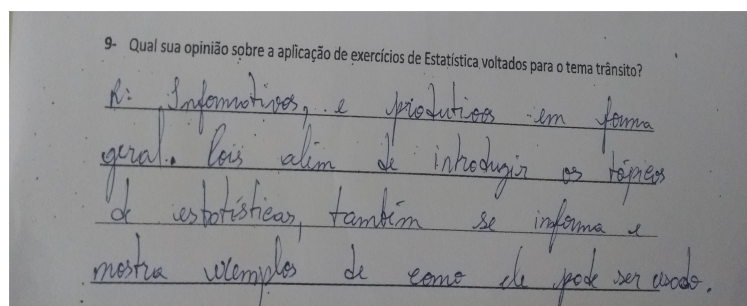 9- Qual sua opinião sobre a aplicação de exercícios de Estatística voltados para o tema trânsito?
R: Informativos, e produtivos em forma
geral. Pois além de introduzir os tópicos
de estatísticas, também se informa e
mostra exemplos de como ele pode ser usado.